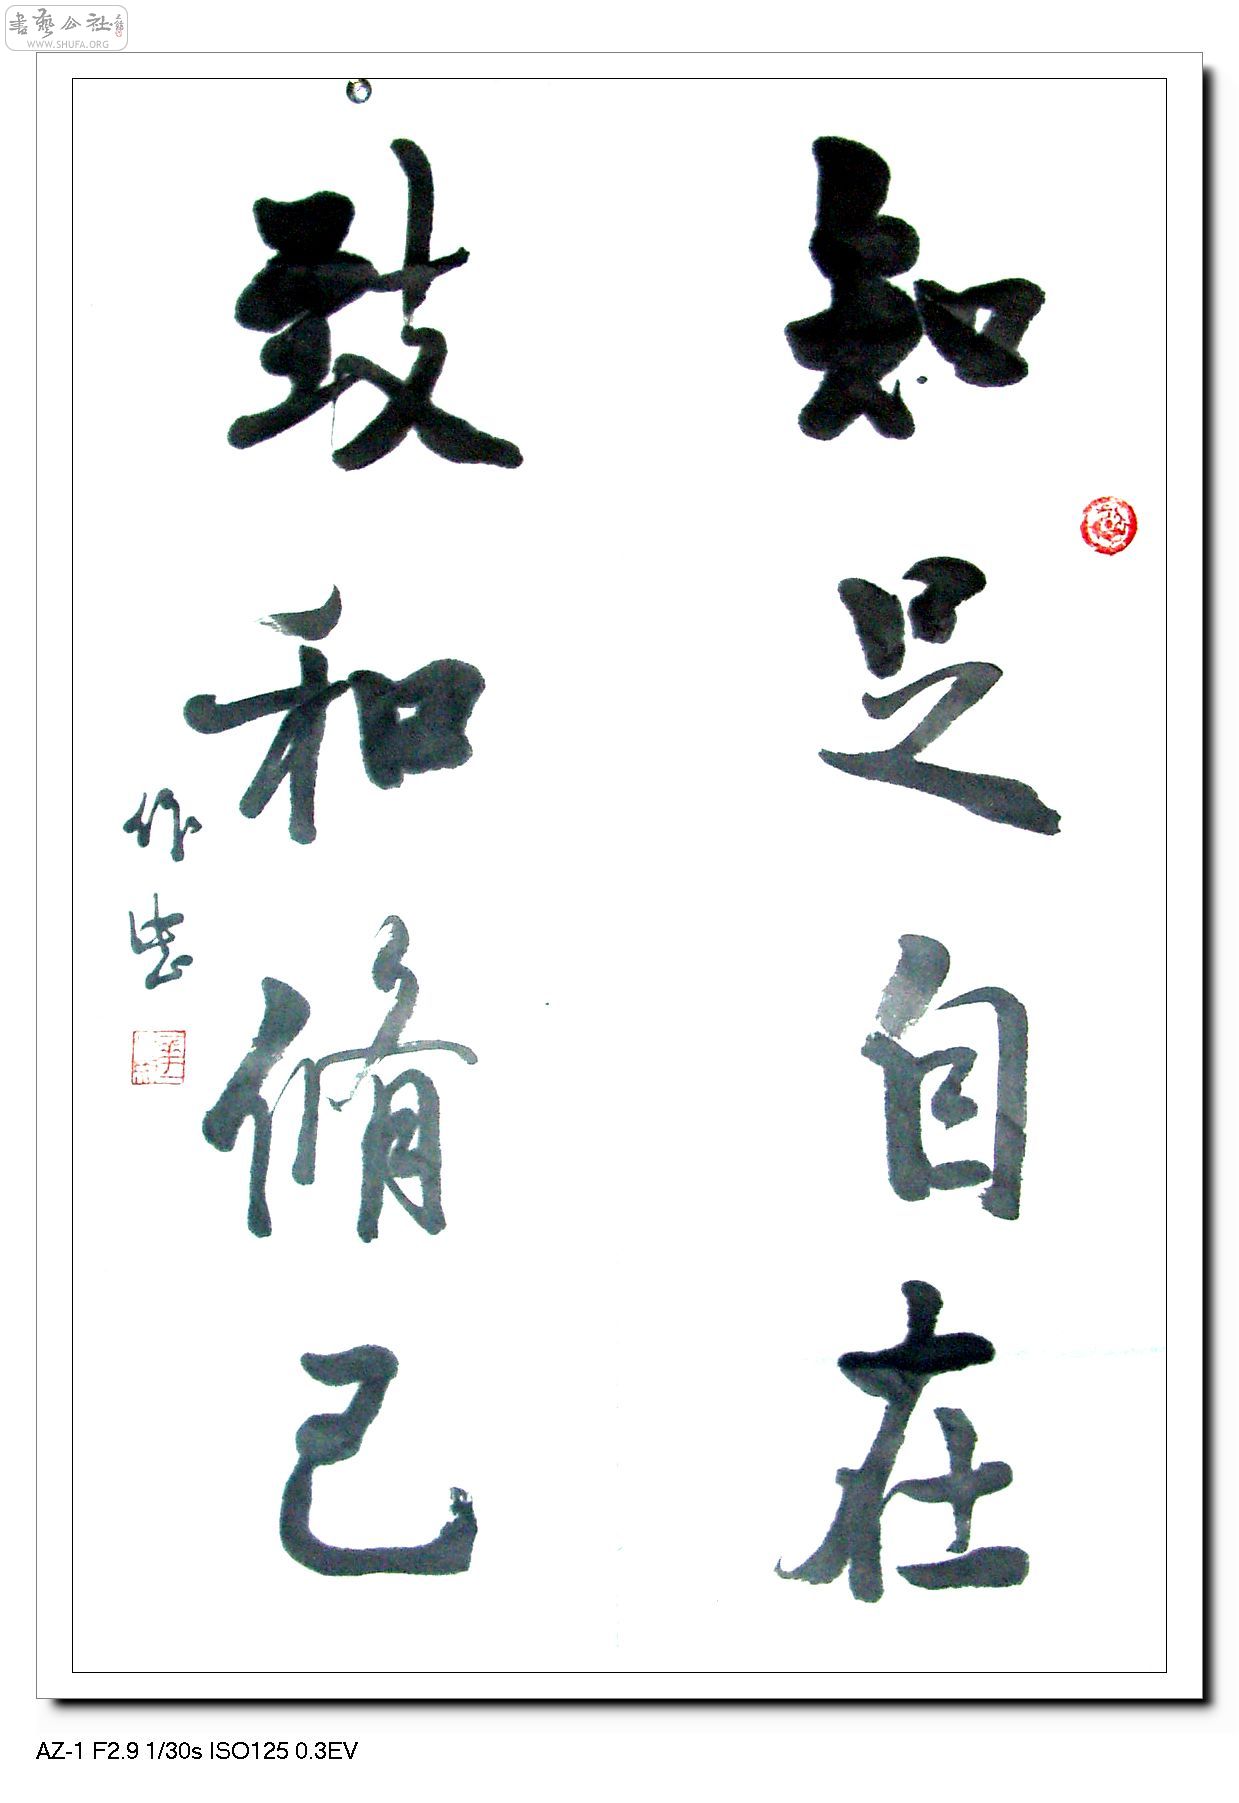 書藝公社
WWW.SHUFA.ORG
知足自在
致和脩己
作忠
AZ-1 F2.9 1/30s ISO125 0.3EV